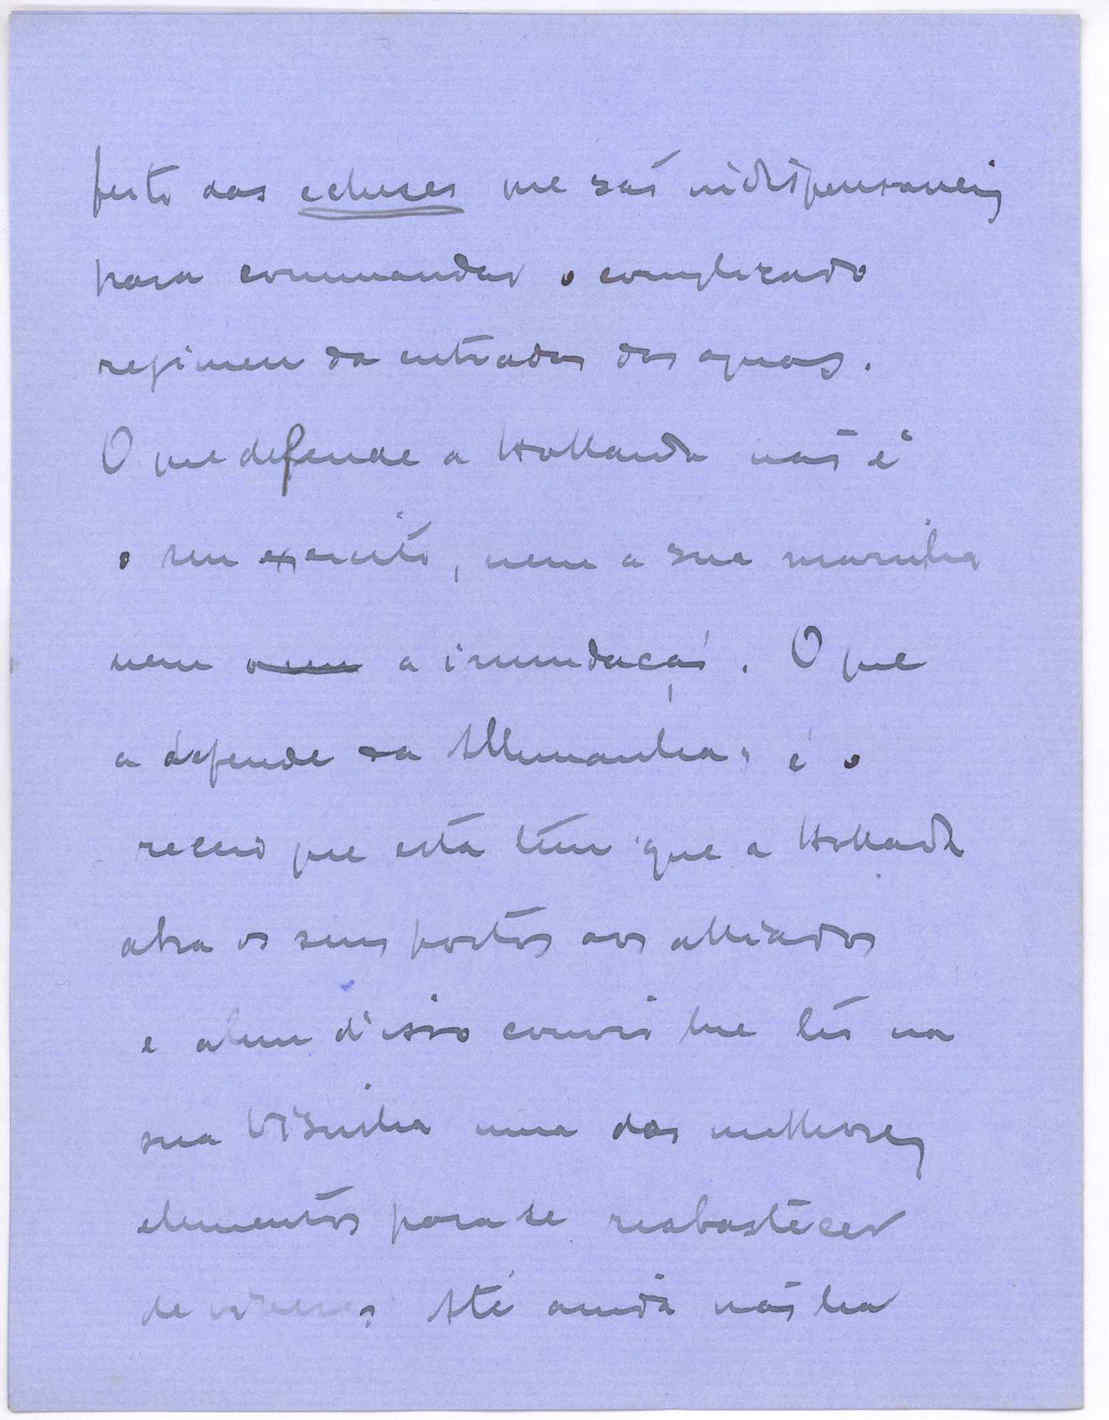 feito das ecluses que são indispensaveis
para commandar o complicado
regimen da entrada das aguas.
O que defende a Hollanda não é
o seu exercito, nem a sua marinha
nem a inundação. O que
a defende da Allemanha, é o
receio que esta têm que a Hollanda
abra os seus portos aos alliados
e alem d'isso convis lhe ter na
sua visinha uma das melhores
elementos para se reabastecer
de viveres. Até ainda não ha